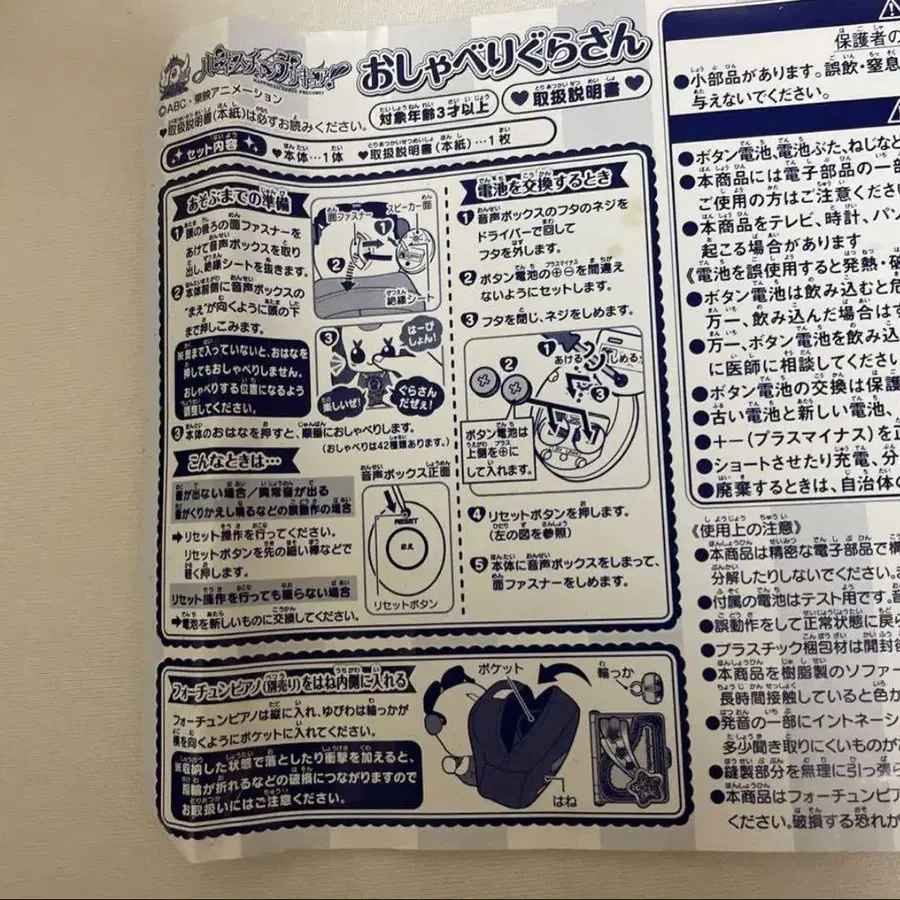 ハピネスチャージプリキュア!
おしゃべりぐらさん
©ABC・東映アニメーション
♥取扱説明書(本紙)は必ずお読みください。
対象年齢3才以上
♥取扱説明書♥
セット内容
♥本体…1体 ♥取扱説明書(本紙)…1枚
あそぶまでの準備
1 頭の後ろの面ファスナーを
あけて音声ボックスを取り
出し、絶縁シートを抜きます。
2 本体前側に音声ボックスの
“まえ”が向くように頭の下
まで押しこみます。
※奥まで入っていないと、おはなを
押してもおしゃべりしません。
おしゃべりする位置になるよう
調整してください。
面ファスナー
スピーカー面
1
2
絶縁シート
3
はーぴ
しょん!
楽しいぜ!
ぐらさん
だぜぇ!
3 本体のおはなを押すと、順番におしゃべりします。
(おしゃべりは42種類あります。)
こんなときは…
音が出ない場合/異常音が出る
音がくりかえし鳴るなどの誤動作の場合
➡リセット操作を行ってください。
リセットボタンを先の細い棒などで
軽く押します。
リセット操作を行っても鳴らない場合
➡電池を新しいものに交換してください。
音声ボックス正面
RESET
まえ
リセットボタン
電池を交換するとき
1 音声ボックスのフタのネジを
ドライバーで回して
フタを外します。
2 ボタン電池の⊕⊖を間違え
ないようにセットします。
3 フタを閉じ、ネジをしめます。
1
あける
しめる
2
3
ボタン電池は
上側を⊕に
して入れます。
4 リセットボタンを押します。
(左の図を参照)
5 本体に音声ボックスをしまって、
面ファスナーをしめます。
フォーチュンピアノ(別売り)をはね内側に入れる
フォーチュンピアノは縦に入れ、ゆびわは輪っかが
横を向くようにポケットに入れてください。
※収納した状態で落としたり衝撃を加えると、
指輪が折れるなどの破損につながりますので
お取扱いにはご注意ください。
ポケット
輪っか
はね
保護者の
●小部品があります。誤飲・窒息
与えないでください。
●ボタン電池、電池ぶた、ねじなど
●本商品には電子部品の一部
ご使用の方はご注意くださ
●本商品をテレビ、時計、パソ
起こる場合があります
《電池を誤使用すると発熱・破
●ボタン電池は飲み込むと危
万一、飲み込んだ場合はす
●万一、ボタン電池を飲み込
に医師に相談してください
●ボタン電池の交換は保護
●古い電池と新しい電池、
●+-(プラスマイナス)を正
●ショートさせたり充電、分
●廃棄するときは、自治体の
《使用上の注意》
●本商品は精密な電子部品で構
分解したりしないでください。
●付属の電池はテスト用です。
●誤動作をして正常状態に戻ら
●プラスチック梱包材は開封後
●本商品を樹脂製のソファー
長時間接触していると色が
●発音の一部にイントネーシ
多少聞き取りにくいものが
●縫製部分を無理に引っ張ら
●本商品はフォーチュンピア
ください。破損する恐れが